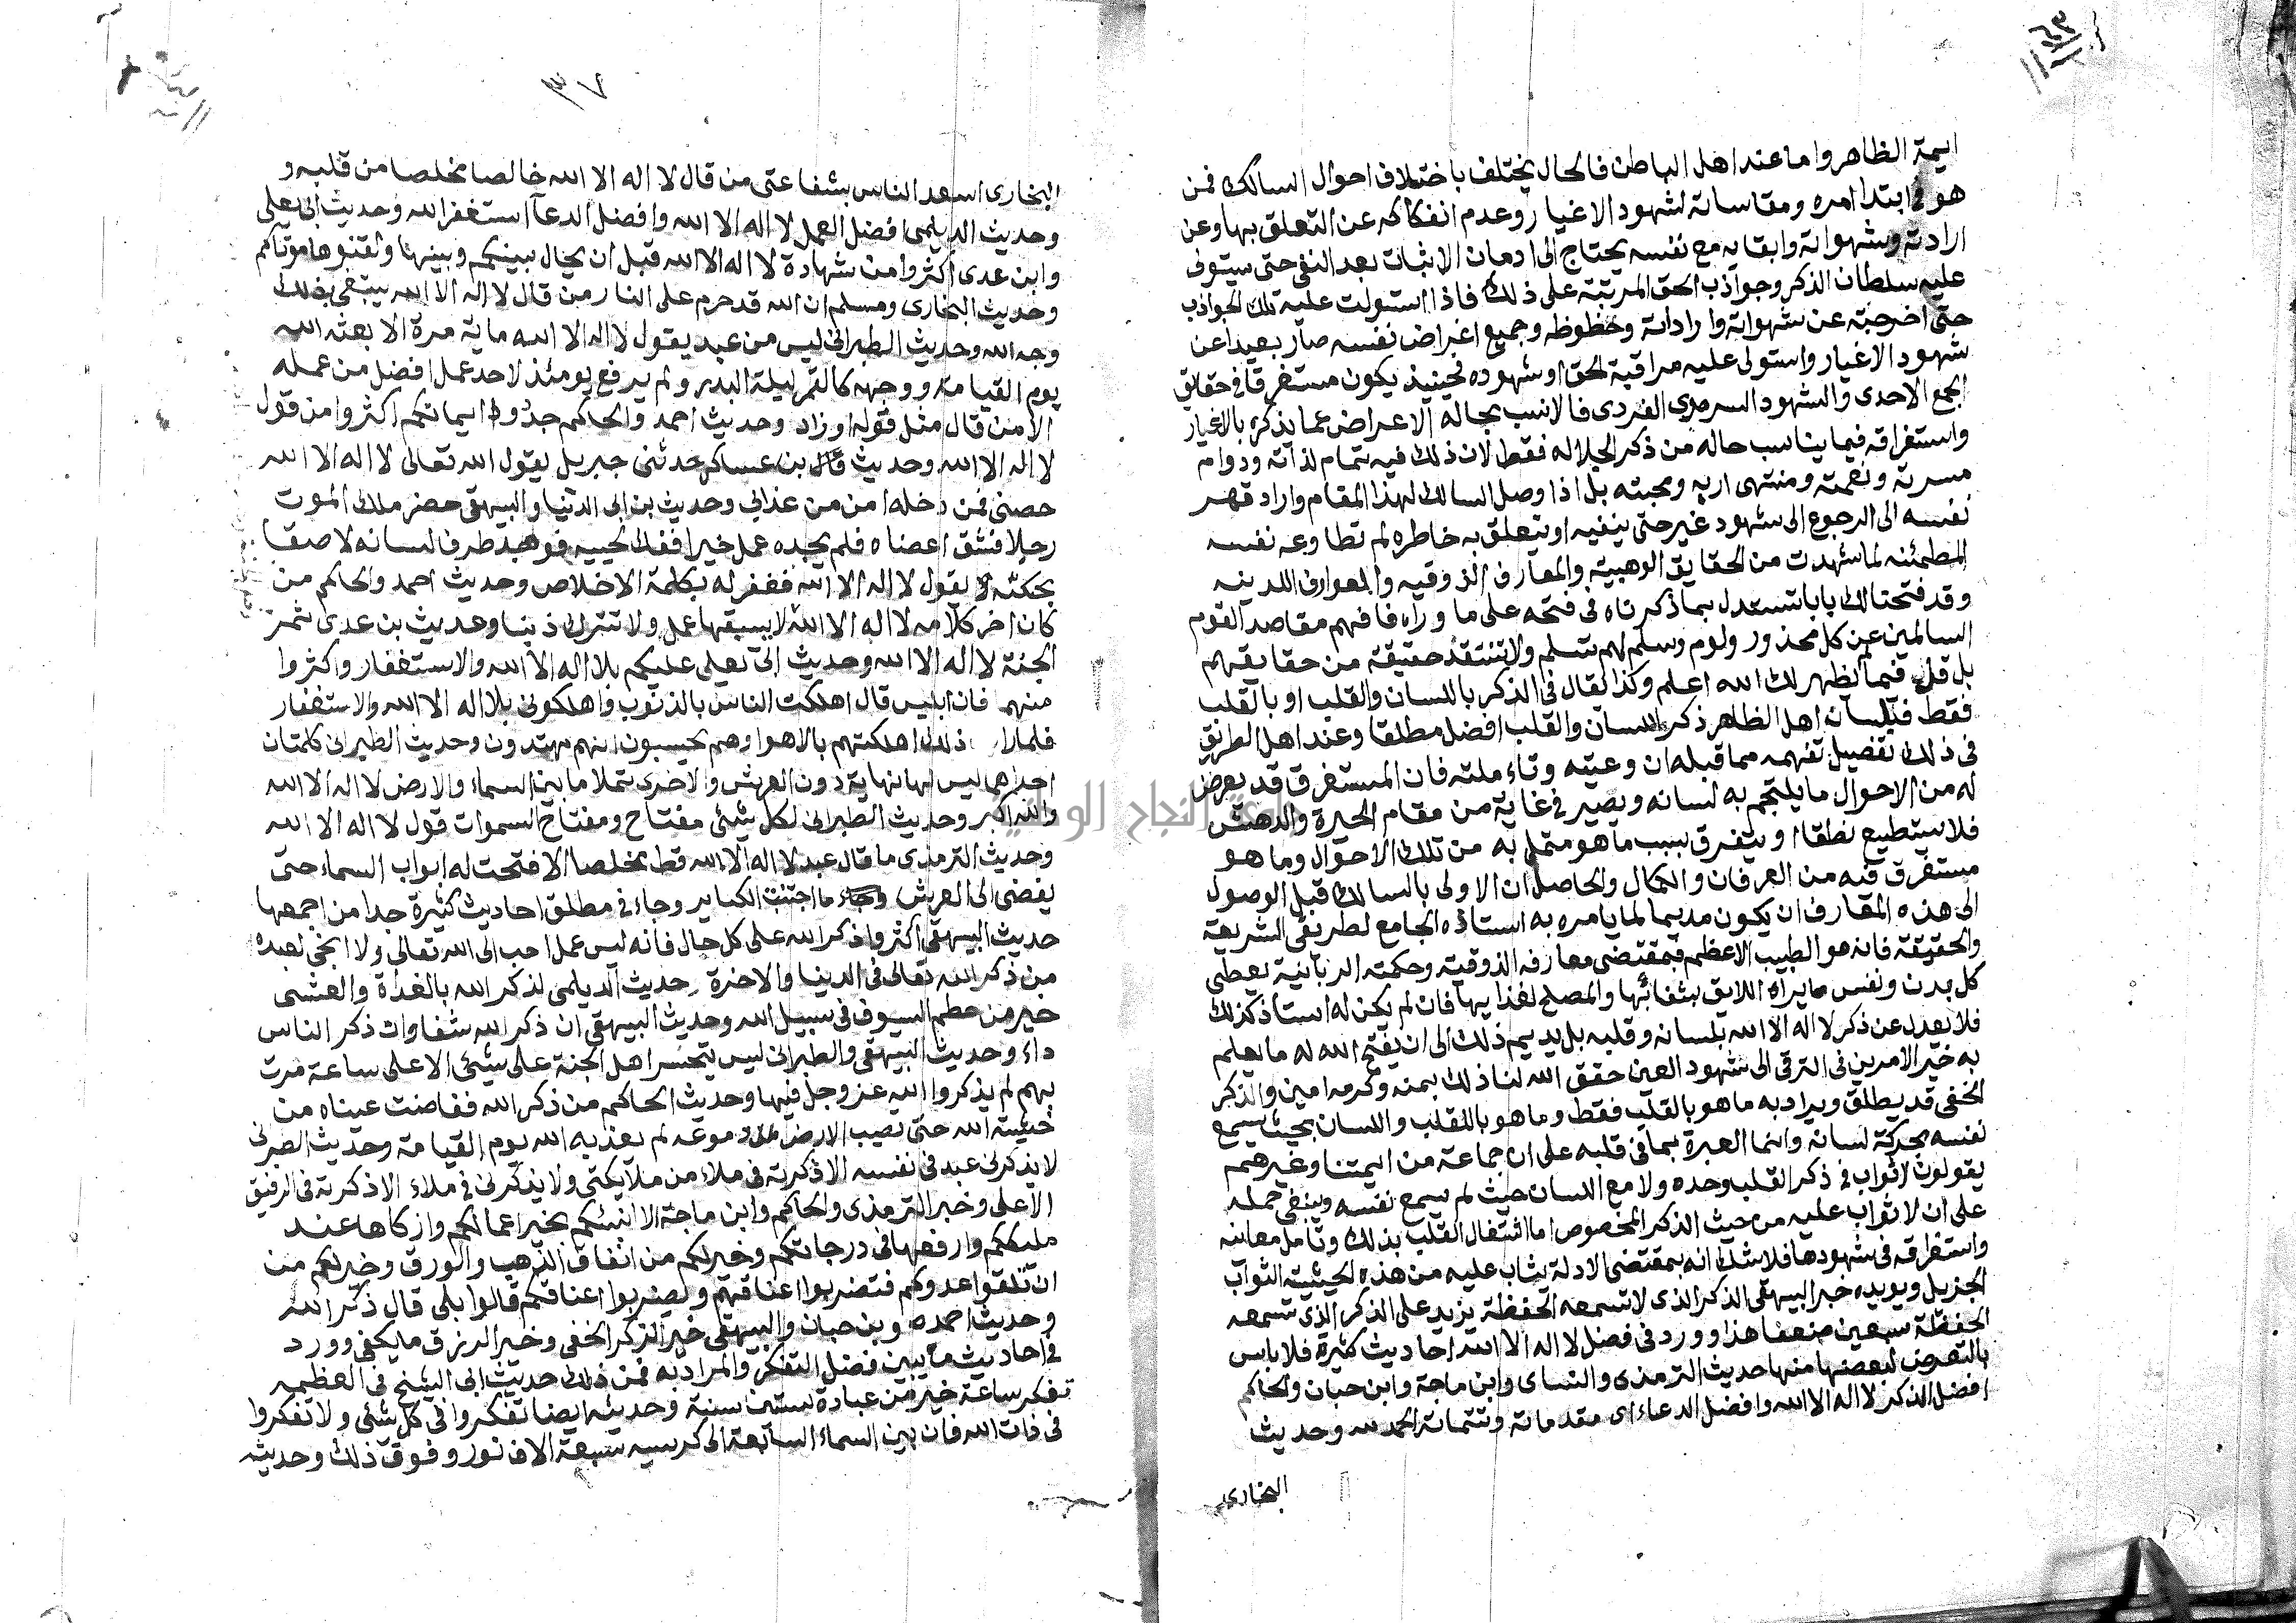 ايمة الظاهر واما عند اهل الباطن فالحال يختلف باختلاف احوال السالك فمن
هو في ابتدا امره ومقاساته لشهود الاغيار وعدم انفكاكه عن التعلق بها وعن
ارادته وشهواته وابقايه مع نفسه يحتاج الى ادمان الاثبات بعد النفي حتى يستولى
عليه سلطان الذكر وجواذب الحق المرتبة على ذلك فاذا استولت عليه تلك الجواذب
حتى اخرجته عن شهواته واراداته وحظوظه وجميع اغراض نفسه صار بعيدا عن
شهود الاغيار واستولى عليه مراقبة الحق او شهوده فحينيذ يكون مستغرقا في حقايق
الجمع الاحدى والشهود السرمدى الفردى فالانسب بحاله الاعراض عما يذكره بالاغيار
واستغراقه فيما يناسب حاله من ذكر الجلاله فقط لان ذلك فيه تمام لذاته ودوام
مسرته ونعمته ومنتهى اربه ومحبته بل اذا وصل السالك لهذا المقام واراد قهر
نفسه الى الرجوع الى شهود غير حتى ينفيه او يتعلق به خاطره لم تطاوعه نفسه
المطمئنه لما شهدت من الحقايق الوهبيه والمعارف الذوقيه والعوارف اللدينه
وقد فتحنا لك بابا تستدل بما ذكرناه في فتحه على ما وراه فافهم مقاصد القوم
السالمين عن كل محذور ولوم وسلم لهم تسلم ولا تنتقد حقيقة من حقايقهم
بل قل فيما لم يظهر لك الله اعلم وكذا يقال في الذكر باللسان والقلب او بالقلب
فقط فبلسان اهل الظاهر ذكر اللسان والقلب افضل مطلقا وعند اهل الطريق
في ذلك تفصيل تفهمه مما قبله ان وعيته وتاءملته فان المستغرق قد يعرض
له من الاحوال ما يلتجم به لسانه ويصير في غاية من مقام الحيرة والدهش
فلا يستطيع نطقا او يتفرق بسبب ما هو متمل به من تلك الاحوال وما هو
مستغرق فيه من العرفان والكمال والحاصل ان الاولى بالسالك قبل الوصول
الى هذه المعارف ان يكون مديما لما يامره به استاذه الجامع لطريقى الشريعة
والحقيقة فانه هو الطبيب الاعظم فبمقتضى معارفه الذوقيه وحكمته الربانية يعطى
كل بدن ونفس ما يراه اللايق بشفائها والمصلح لغذايها فان لم يكن له استاذ كذلك
فلا يعدل عن ذكر لا اله الا الله بلسانه وقلبه بل يديم ذلك الى ان يفتح الله له ما يعلم
به خير الامرين في الترقى الى شهود العين حقق الله لنا ذلك بمنه وكرمه امين والذكر
الخفى قد يطلق ويراد به ما هو بالقلب فقط وما هو بالقلب واللسان بحيث يسمع
نفسه بحركة لسانه وانما العبرة بما في قلبه على ان جماعة من ايمتنا وغيرهم
يقولون لا ثواب في ذكر القلب وحده ولا مع اللسان حيث لم يسمع نفسه وينبغى حمله
على ان لا ثواب عليه من حيث الذكر المخصوص اما اشتغال القلب بذلك وتامل معانيه
واستغراقه في شهودها فلا شك انه بمقتضى الادلة يثاب عليه من هذه الحيثية الثواب
الجزيل ويويده خبر البيهقى الذكر الذى لا تسمعه الحفظة يزيد على الذكر الذى تسمعه
الحفظة سبعين ضعفا هذا وورد في فضل لا اله الا الله احاديث كثيرة فلا باس
بالتعرض لبعضها منها حديث الترمذى والنساى وابن ماجة وابن حبان والحاكم
افضل الذكر لا اله الا الله وافضل الدعاء اى مقدماته وتتماته الحمد لله وحديث
البخارى
البخارى اسعد الناس بشفاعتى من قال لا اله الا الله خالصا مخلصا من قلبه و
وحديث الديلمى افضل العمل لا اله الا الله وافضل الدعآ استغفر الله وحديث ابى يعلى
وابن عدى اكثروا من شهادة لا اله الا الله قبل ان يحال بينكم وبينها ولقنوها موتاكم
وحديث البخارى ومسلم ان الله قد حرم على النار من قال لا اله الا الله يبتغى بذلك
وجه الله وحديث الطبرانى ليس من عبد يقول لا اله الا الله ماية مرة الا بعثه الله
يوم القيامة ووجهه كالقمر ليلة البدر ولم يرفع يومئذ لاحد عمل افضل من عمله
الا من قال مثل قوله او زاد وحديث احمد والحاكم جددوا ايمانكم اكثروا من قول
لا اله الا الله وحديث بن عساكر حدثنى جبريل يقول الله تعالى لا اله الا الله
حصنى فمن دخله امن من عذابى وحديث بن ابى الدنيا والبيهقى حضر ملك الموت
رجلا فشق اعضاه فلم يجده عمل خيرا ففك لحييه فوجد طرف لسانه لاصقا
بحنكه يقول لا اله الا الله فغفر له بكلمة الاخلاص وحديث احمد والحاكم من
كان اخر كلامه لا اله الا الله لا يسبقها عمل ولا تترك ذنبا وحديث بن عدى ثمن
الجنة لا اله الا الله وحديث ابى يعلى عليكم بلا اله الا الله والاستغفار واكثروا
منهم فان ابليس قال اهلكت الناس بالذنوب واهلكونى بلا اله الا الله والاستغفار
فلما ذلك اهلكتهم بالاهوا وهم يحسبون انهم مهتدون وحديث الطبرانى كلمتان
احداهما ليس لها نهاية دون العرش والاخرى تملا ما بين السماء والارض لا اله الا الله
والله اكبر وحديث الطبرانى لكل شئى مفتاح ومفتاح السموات قول لا اله الا الله
وحديث الترمذى ما قال عبد لا اله الا الله قط مخلصا الا فتحت له ابواب السماء حتى
يفضى الى العرش ما اجتنبت الكباير وجاء في مطلق احاديث كثيرة جدا من اجمعها
حديث البيهقى اكثروا ذكر الله على كل حال فانه ليس عمل احب الى الله تعالى ولا انجى لعبده
من ذكر الله تعالى في الدنيا والاخرة وحديث الديلمى لذكر الله بالغداة والعشى
خير من حطم السيوف في سبيل الله وحديث البيهقى ان ذكر الله شفا وان ذكر الناس
داء وحديث البيهقى والطبرانى ليس يتحسر اهل الجنة على شيئى الا على ساعة مرت
بهم لم يذكروا الله عز وجل فيها وحديث الحاكم من ذكر الله ففاضت عيناه من
خشية الله حتى يصيب الارض دموعه لم يعذبه الله يوم القيامة وحديث الطبرنى
لا يذكرنى عبد في نفسه الا ذكرته في ملاء من ملآيكتى ولا يذكرنى في ملاء الا ذكرته في الرفيق
الاعلى وخبر الترمذى والحاكم وابن ماجة الا انبئكم بخير اعمالكم وازكاها عند
مليككم وارفعها في درجاتكم وخير لكم من انفاق الذهب والورق وخير لكم من
ان تلقوا عدوكم فتضربوا اعناقهم ويضربوا اعناقكم قالوا بلى قال ذكر الله
وحديث احمد وبن حبان والبيهقى خير الذكر الخفى وخير الرزق ما يكفى وورد
في احاديث ما يبين فضل التفكر والمراد به فمن ذلك حديث ابى الشيخ في العظمه
تفكر ساعة خير من عبادة ستين سنة وحديثه ايضا تفكروا في كل شئى ولا تفكروا
في ذات الله فان بين السماء السابعة الى كرسيه سبعة الاف نور وفوق ذلك وحديثه
جامعة النجاح الوطنية